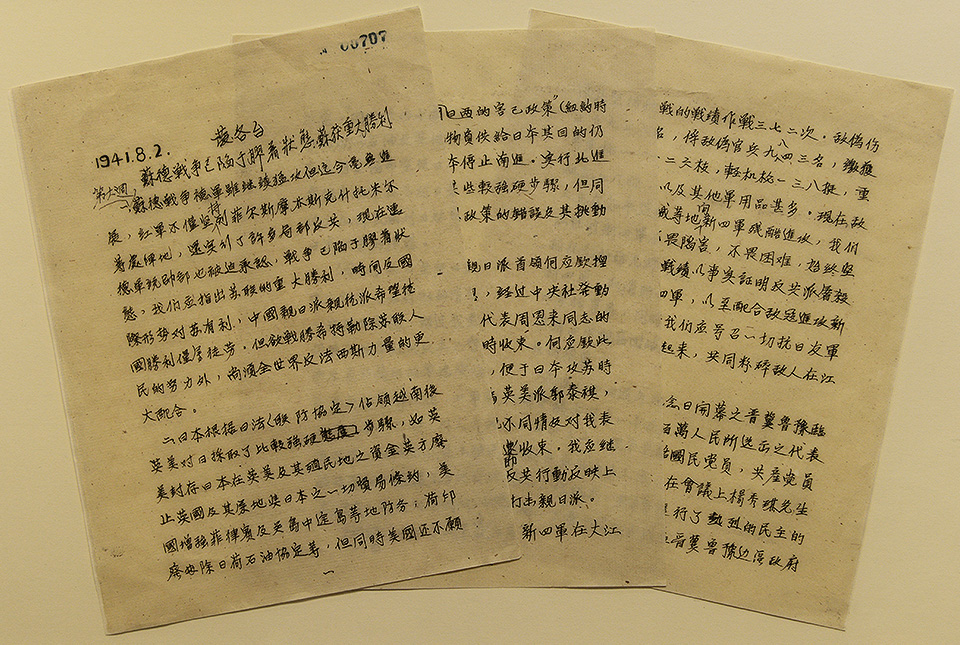 00707
1941.8.2.
蘇德戰争已陷于膠着狀態蘇获重大勝利
蘇德战争德軍雖继续猛攻但迄今毫無進
展,红軍不僅坚持列菲尔斯摩本斯克什托米尔
着處陣地,還实行了許多局部反攻,現在連
德軍統帥部也被迫承認,戰争已陷于膠着狀
態,我们应指出苏联的重大勝利,時间及國
際形势对苏有利,中國親日派親德派希望德
國勝利僅是徒劳。但欲戰勝希特勒除苏联人
民的努力外,尚須全世界反法西斯力量的更
大配合。
二日本根据日法<联防協定>佔領越南後
英美对日採取了比較強硬步驟,如英
美封存日本在英美及其殖民地之資金英方廢
止英國及其属地與日本之一切貿易條約,美
國增強菲律賓及关島中途島等地防务;荷印
廢除日荷石油協定等,但同時美國还不願
日西的害己政策"(紐約時
物資供給日本其目的仍
本停止南進。实行北進
某些較強硬步驟,但同
政策的錯誤及其挑動
親日派首領何应欽捏
,經过中央社发動
代表周恩来同志的
時收束。何应欽此
,便于日本攻苏時
英美派郭泰祺,
不同情反对我表
收束,我应继
反共行動反映上
打击親日派。
新四軍在大江
戰的戰績作战三七二次。敌伪伤
名,俘敌偽官兵九八四三名,繳獲
二六枝,輕机枪一三八挺,重
以及其他軍用品甚多。現在敌
或等地向新四軍残酷進攻,我们
畏陷害,不畏困难,始终坚
戰績以事实証明反共派署殺
四軍,以至配合敌冦進攻新
我们应号召一切抗日友軍
起来,共同粉碎敌人在江
念日開幕之晋冀鲁豫臨
百萬人民所选出之代表
括國民党員,共產党員
在會議上楊秀峰先生
進行了熱烈的民主的
晋冀鲁豫边區政府